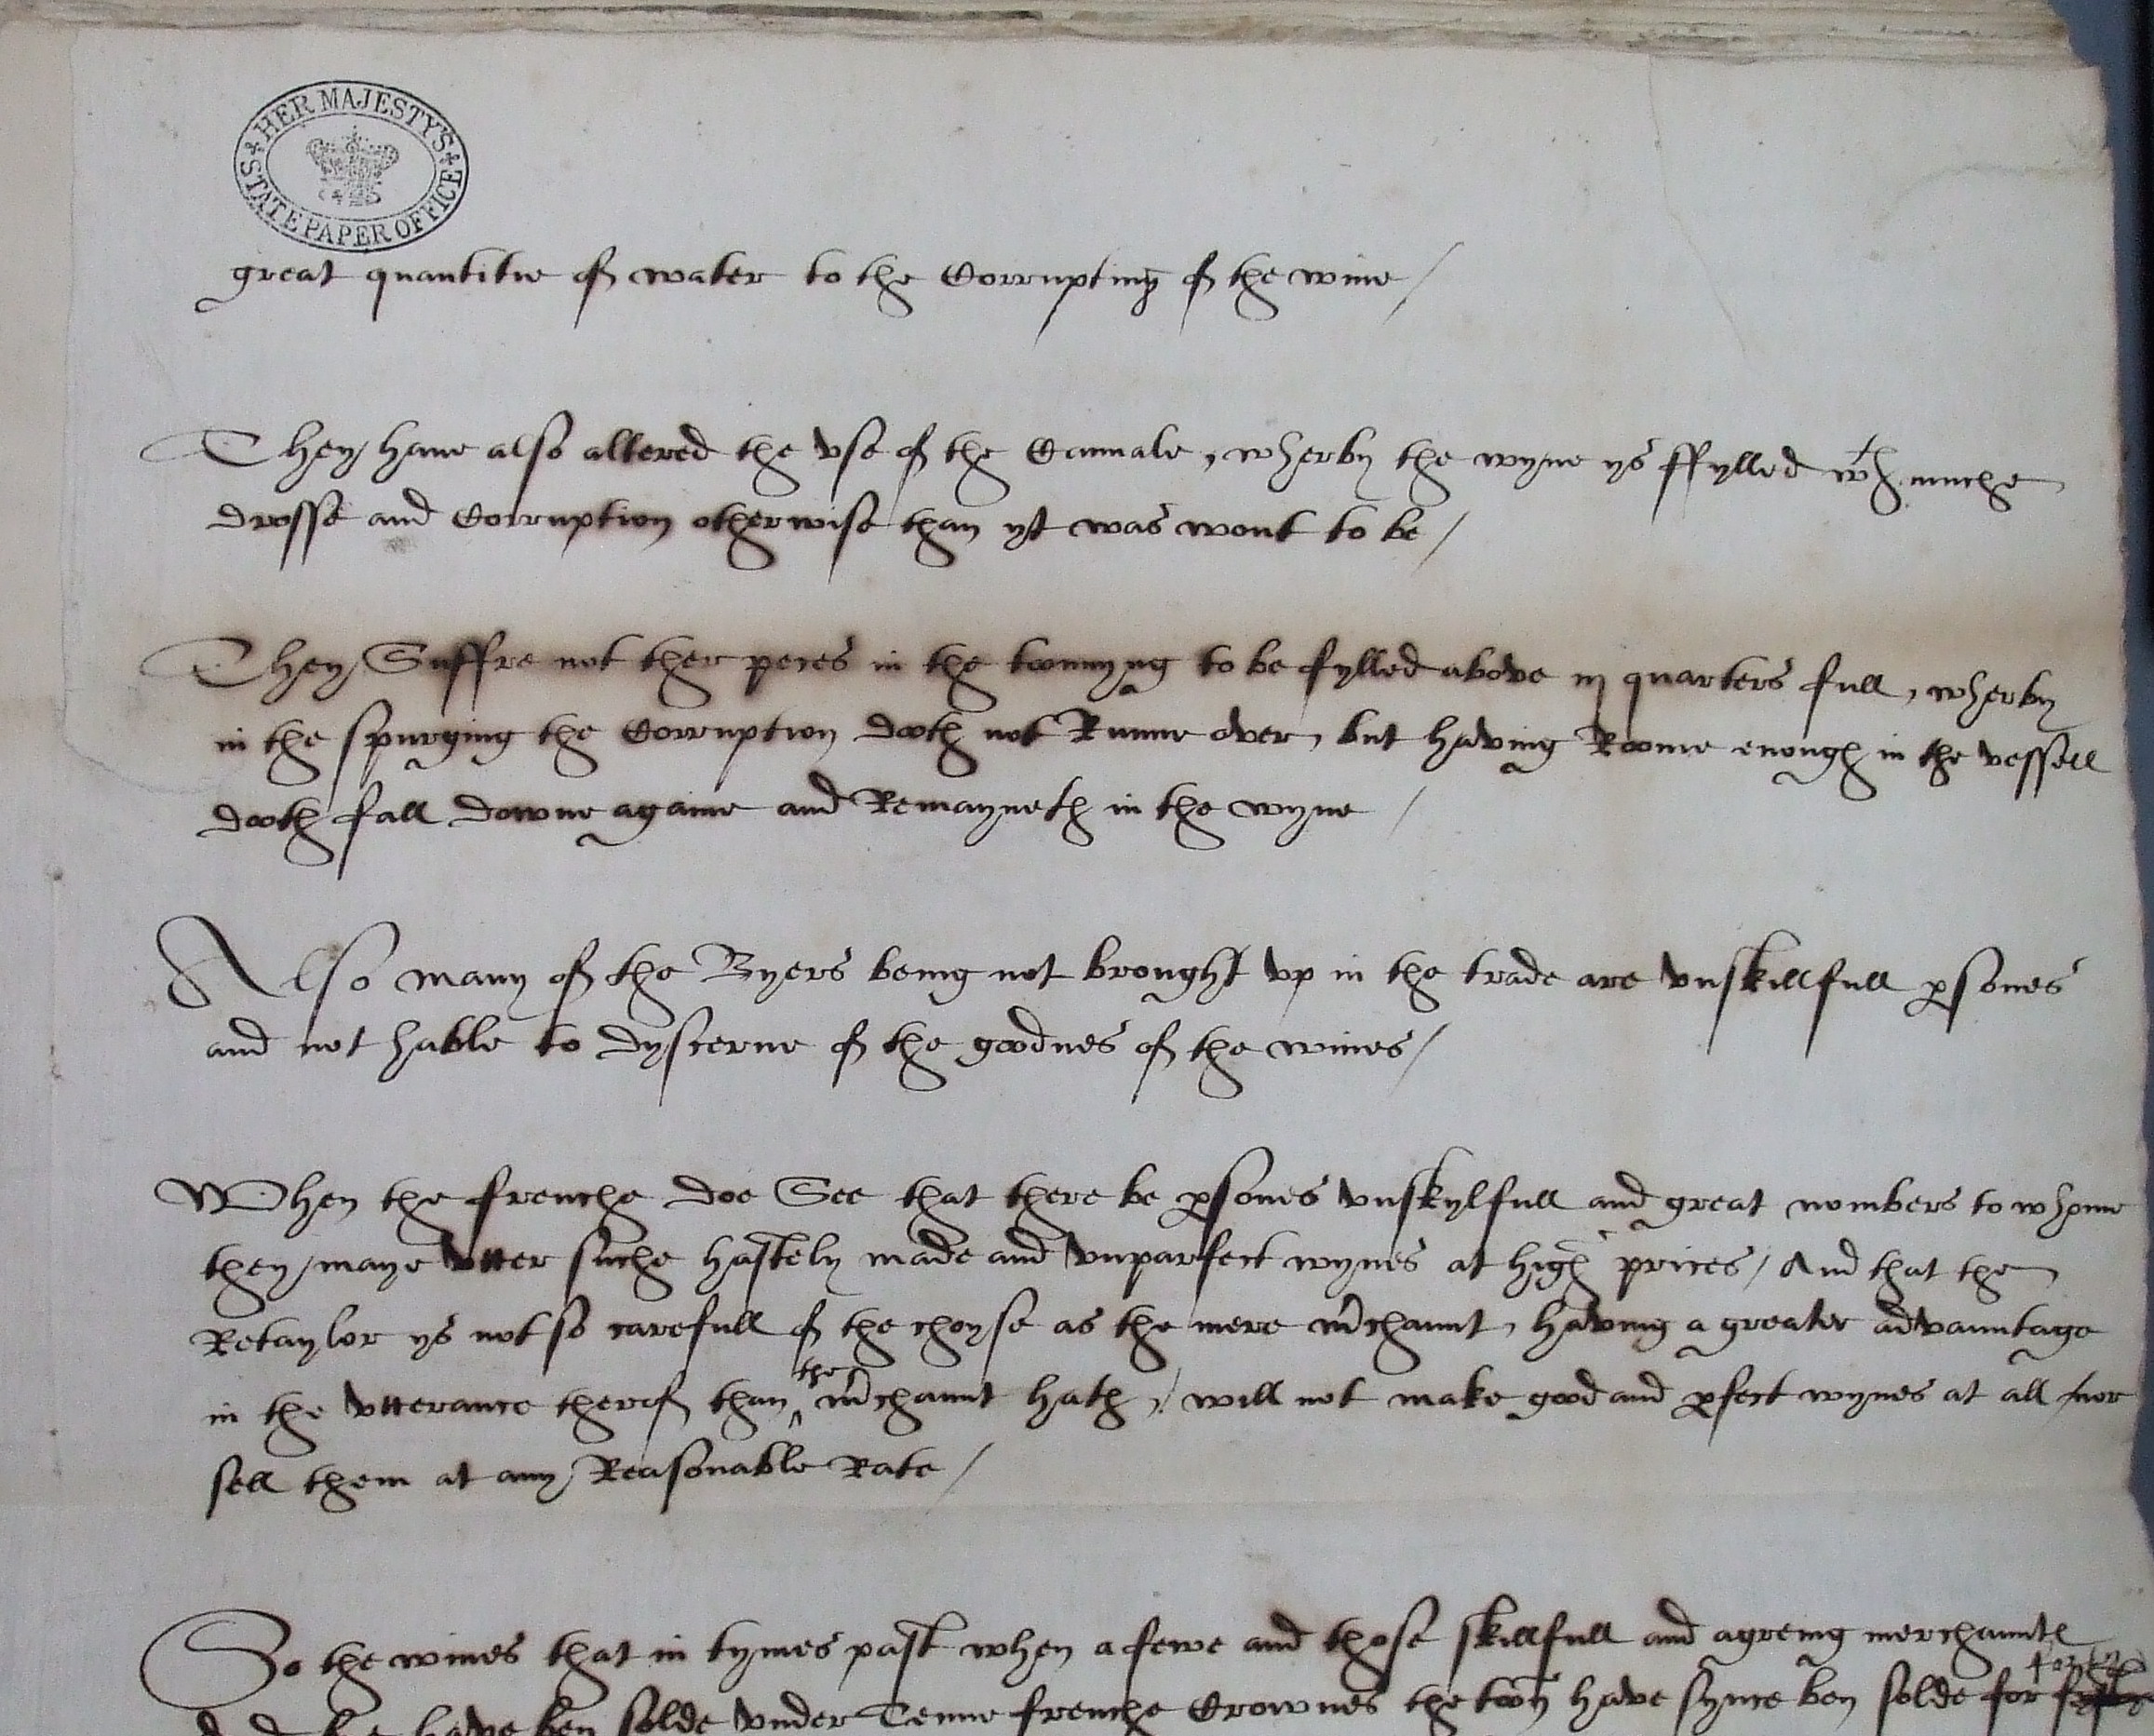 HER MAJESTY'S STATE PAPER OFFICE
great quantitie of water to the Corrupting of the wine /
They have also altered the vse of the Cannale, wherby the wyne ys ffylled wth muche
drosse and Corruption otherwise than yt was wont to be /
They Suffre not ther peces in the tonnyng to be fylled above iij quarters full, wherby
in the spurging the Corruption dooth not Runne over, but having Roome enough in the vessell
dooth fall downe againe and Remayneth in the wyne /
Also many of the Byers being not brought vp in the trade are vnskillfull psones
and not hable to dyscerne of the goodnes of the wines /
When the frenche doe See that there be psones vnskylfull and great nombers to whome
they maye vtter suche hastely made and vnparfect wynes at high prices / And that the
Retaylor ys not so carefull of the choyse as the mere mchaunt, having a greater advauntage
in the vtterance therof than the mchaunt hath, / will not make good and pfect wynes at all / nor
sell them at any Reasonable Rate /
So the wines that in tymes past when a fewe and those skillfull and agreing merchauntes
have ben solde vnder Tenne frenche Crownes the toon have synce ben solde for